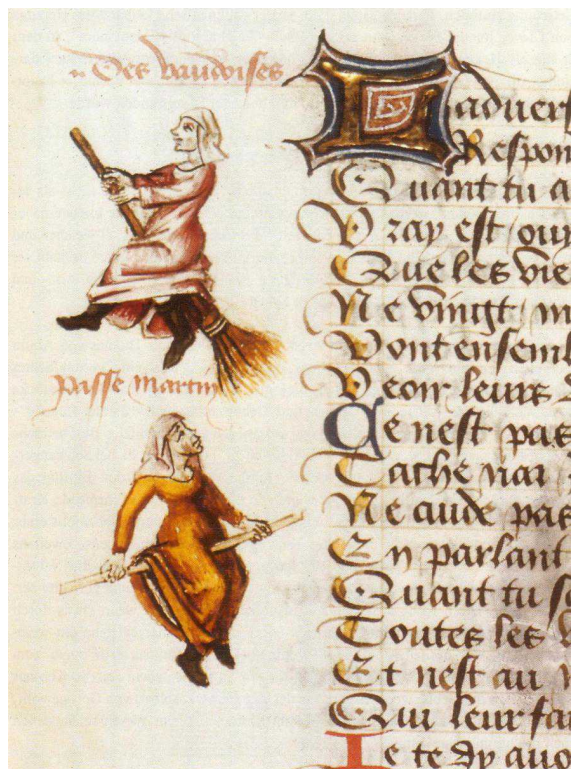 Des vaudoises
passe martin
Laduers
Respon
Quant tu a
Vray est ouy
Que les vie
Ne vingt m
Vont ensembl
Veoir leurs d
Ce nest pas
Tache par
Ne cuide pas
En parlant
Quant tu sc
Toutes les
Et nest au
Qui leur fai
Je te dy auo